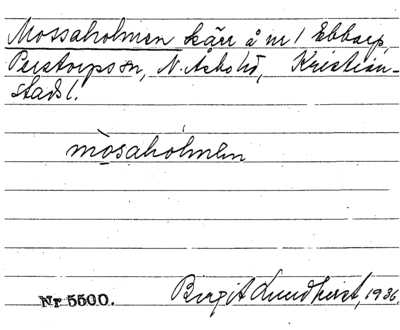 Mossaholmen kärr å nr 1 Ebbarp,
Perstorps sn, N. Åsbo hd, Kristian-
stads l.
mòsahólmen
Nr 5500.
Birgit Lundqvist, 1936.